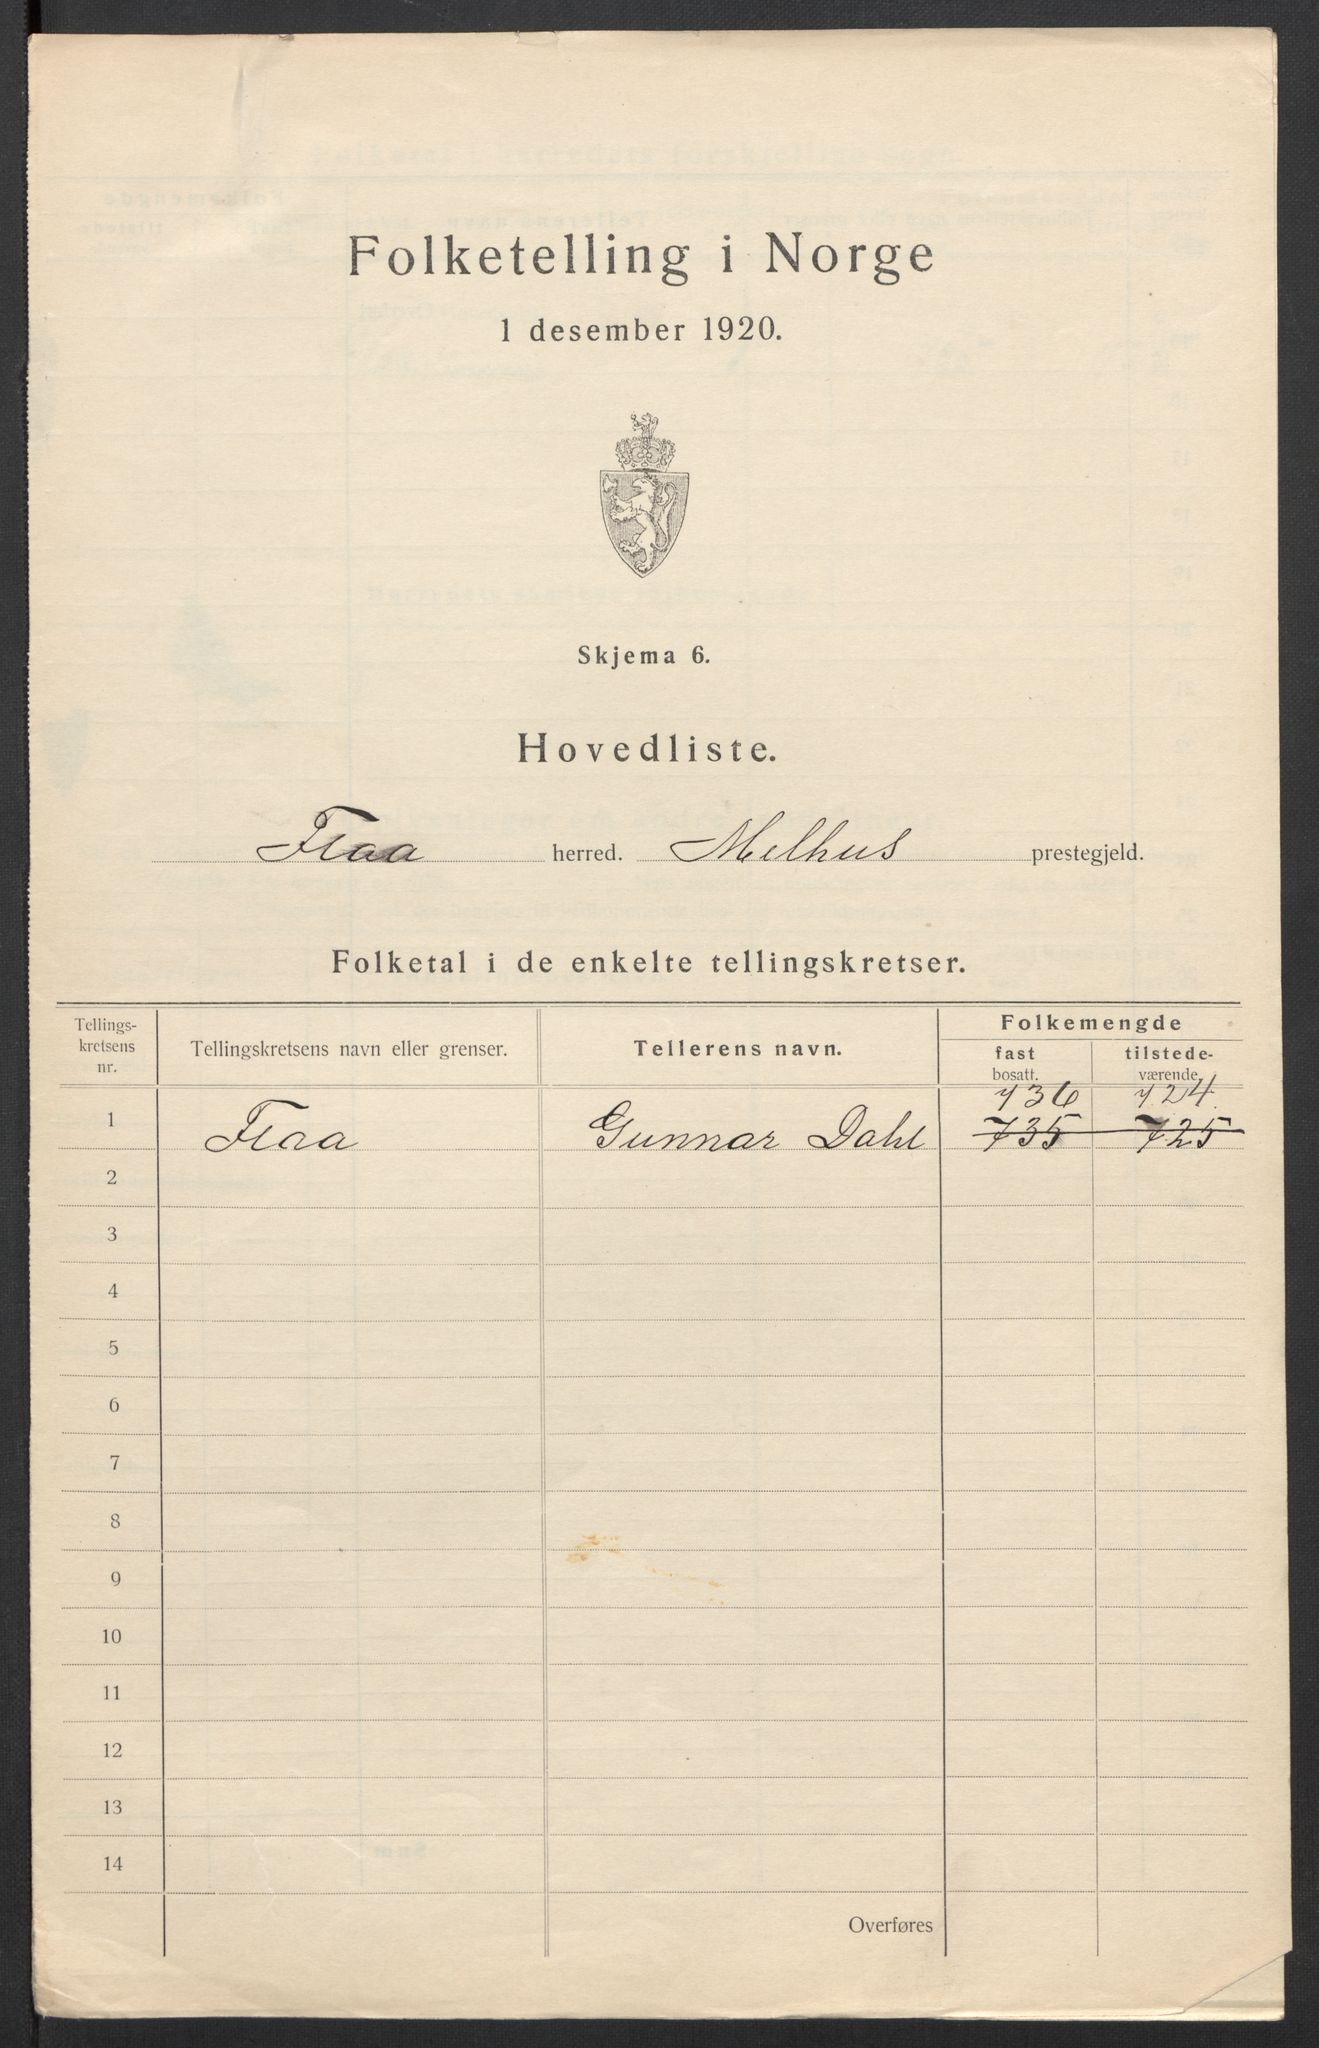 Folketelling i Norge
1 desember 1920.
Skjema 6.
Hovedliste.
Flaa herred. Melhus prestegjeld.
Folketal i de enkelte tellingskretser.
Tellings-
kretsens
nr.
Tellingskretsens navn eller grenser.
Tellerens navn.
Folkemengde
fast
bosatt.
tilstede-
værende
736 724
1 Flaa Gunnar Dahl 735 725
2
3
4
5
6
7
8
9
10
11
12
13
14
Overføres